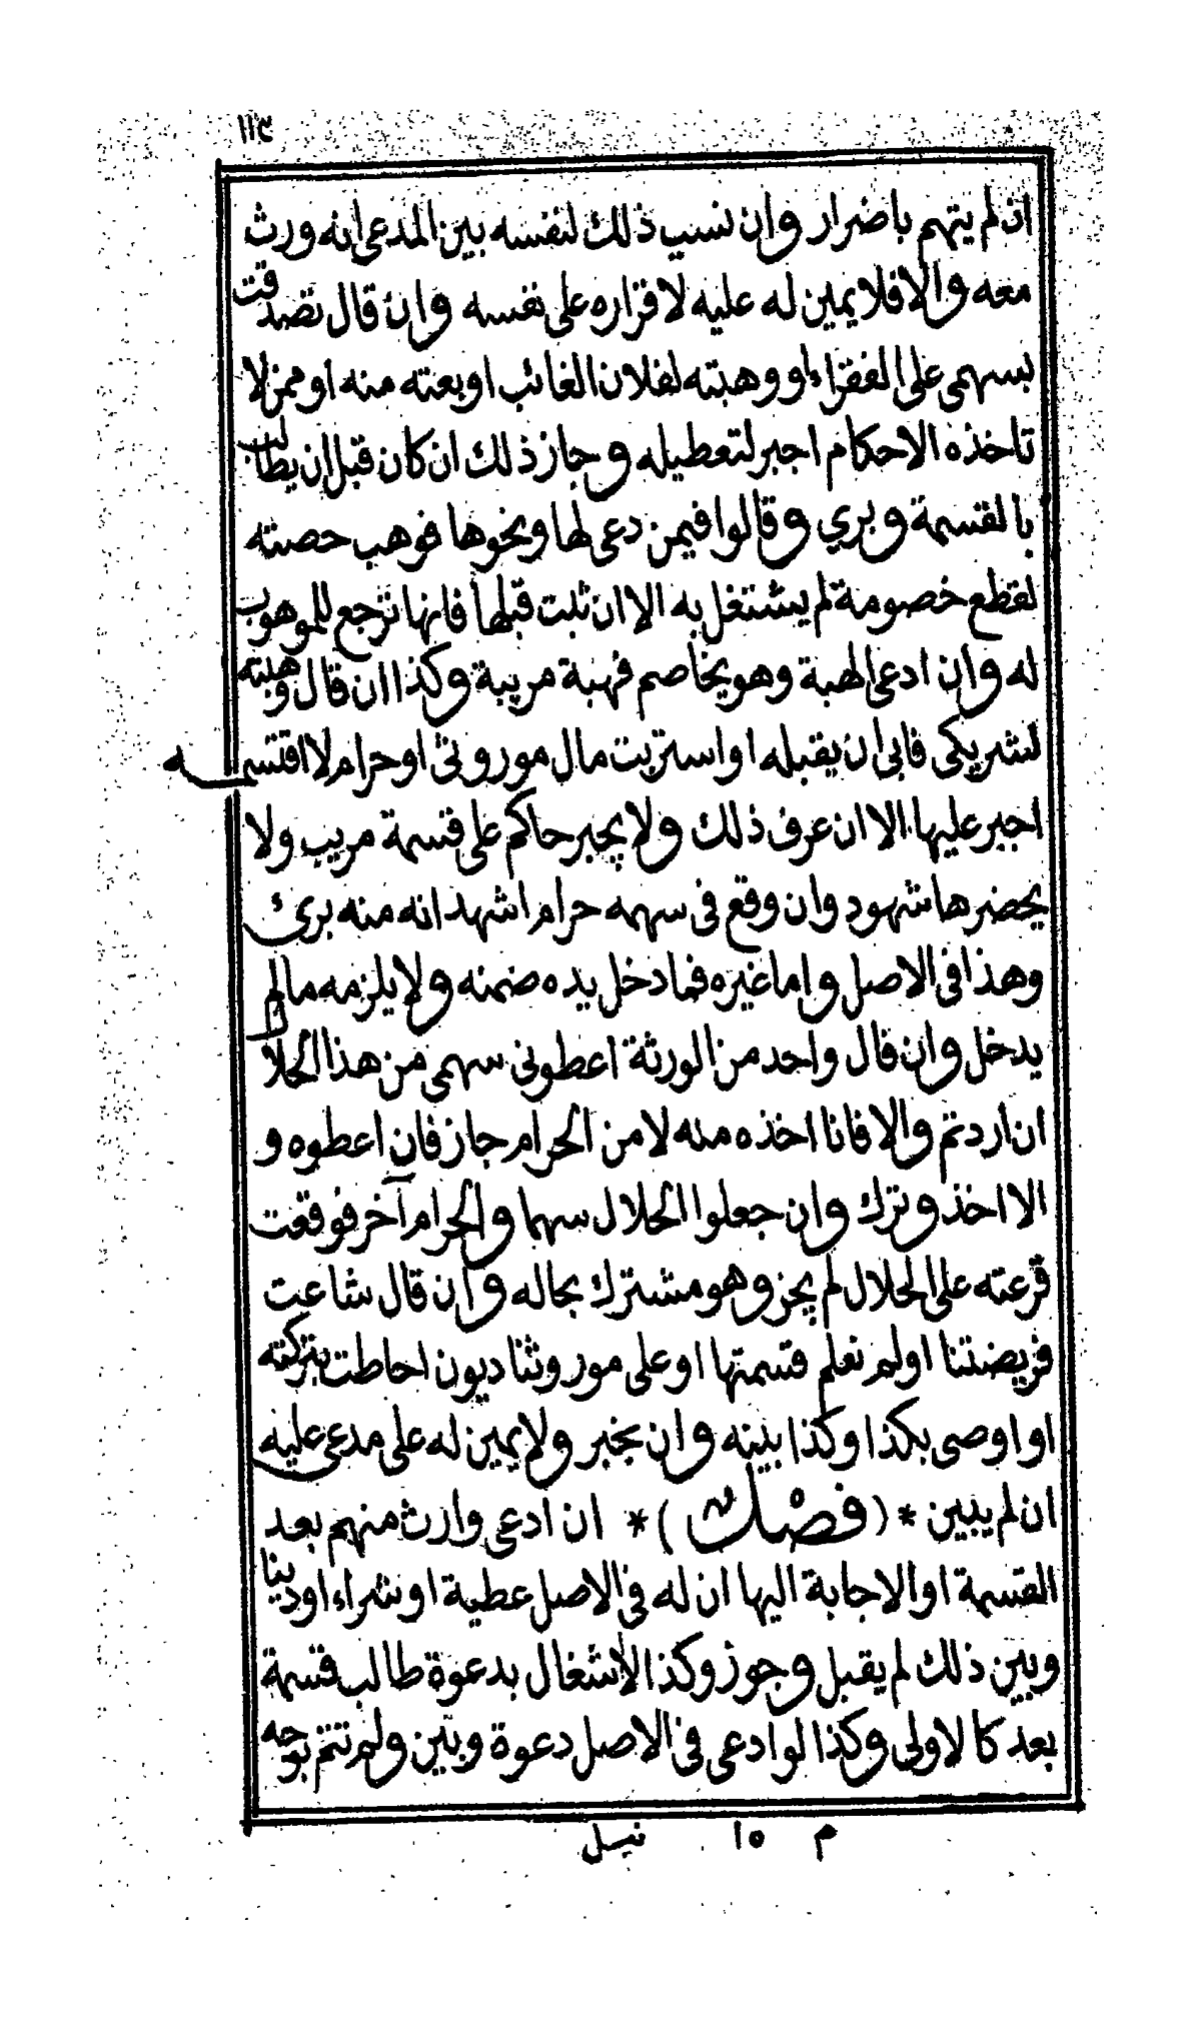 ١١٣
ان لم يتهم باضرار وان نسب ذلك لنفسه بين المدعى انه ورث
معه والا فلا يمين له عليه لاقراره على نفسه وان قال تصدقت
بسهمى على الفقراء او وهبته لفلان الغائب او بعته منه او ممن لا
تاخذه الاحكام اجبر لتعطيله وجاز ذلك ان كان قبل ان يطالب
بالقسمة وبري وقالوا فيمن دعى لها ونحوها فوهب حصته
لقطع خصومة لم يشتغل به الا ان ثبت قبلها فانها ترجع للموهوب
له وان ادعى الهبة وهو يخاصم فهبة مريبة وكذا ان قال وهبته
لشريكى فابى ان يقبله او استربت مال موروثى او حرام لا اقتسمه
اجبر عليها الا ان عرف ذلك ولا يجبر حاكم على قسمة مريب ولا
يحضرها شهود وان وقع فى سهمه حرام اشهد انه منه برئ
وهذا فى الاصل واما غيره فما دخل يده ضمنه ولا يلزمه ما لم
يدخل وان قال واحد من الورثة اعطونى سهمى من هذا الحلال
ان اردتم والا فانا اخذه منه لا من الحرام جاز فان اعطوه و
الا اخذ وترك وان جعلوا الحلال سهما والحرام آخر فوقعت
قرعته على الحلال لم يجز وهو مشترك بحاله وان قال شاعت
فريضتنا او لم نعلم قسمتها او على موروثنا ديون احاطت بتركته
او اوصى بكذا وكذا بينه وان بخبر ولا يمين له على مدعى عليه
ان لم يبين * (فصل) * ان ادعى وارث منهم بعد
القسمة او الاجابة اليها ان له فى الاصل عطية او شراء او دينا
وبين ذلك لم يقبل وجوز وكذا الاشغال بدعوة طالب قسمة
بعد كالاولى وكذا لو ادعى فى الاصل دعوة وبين ولم تتم بوجه
م ١٥ نيل